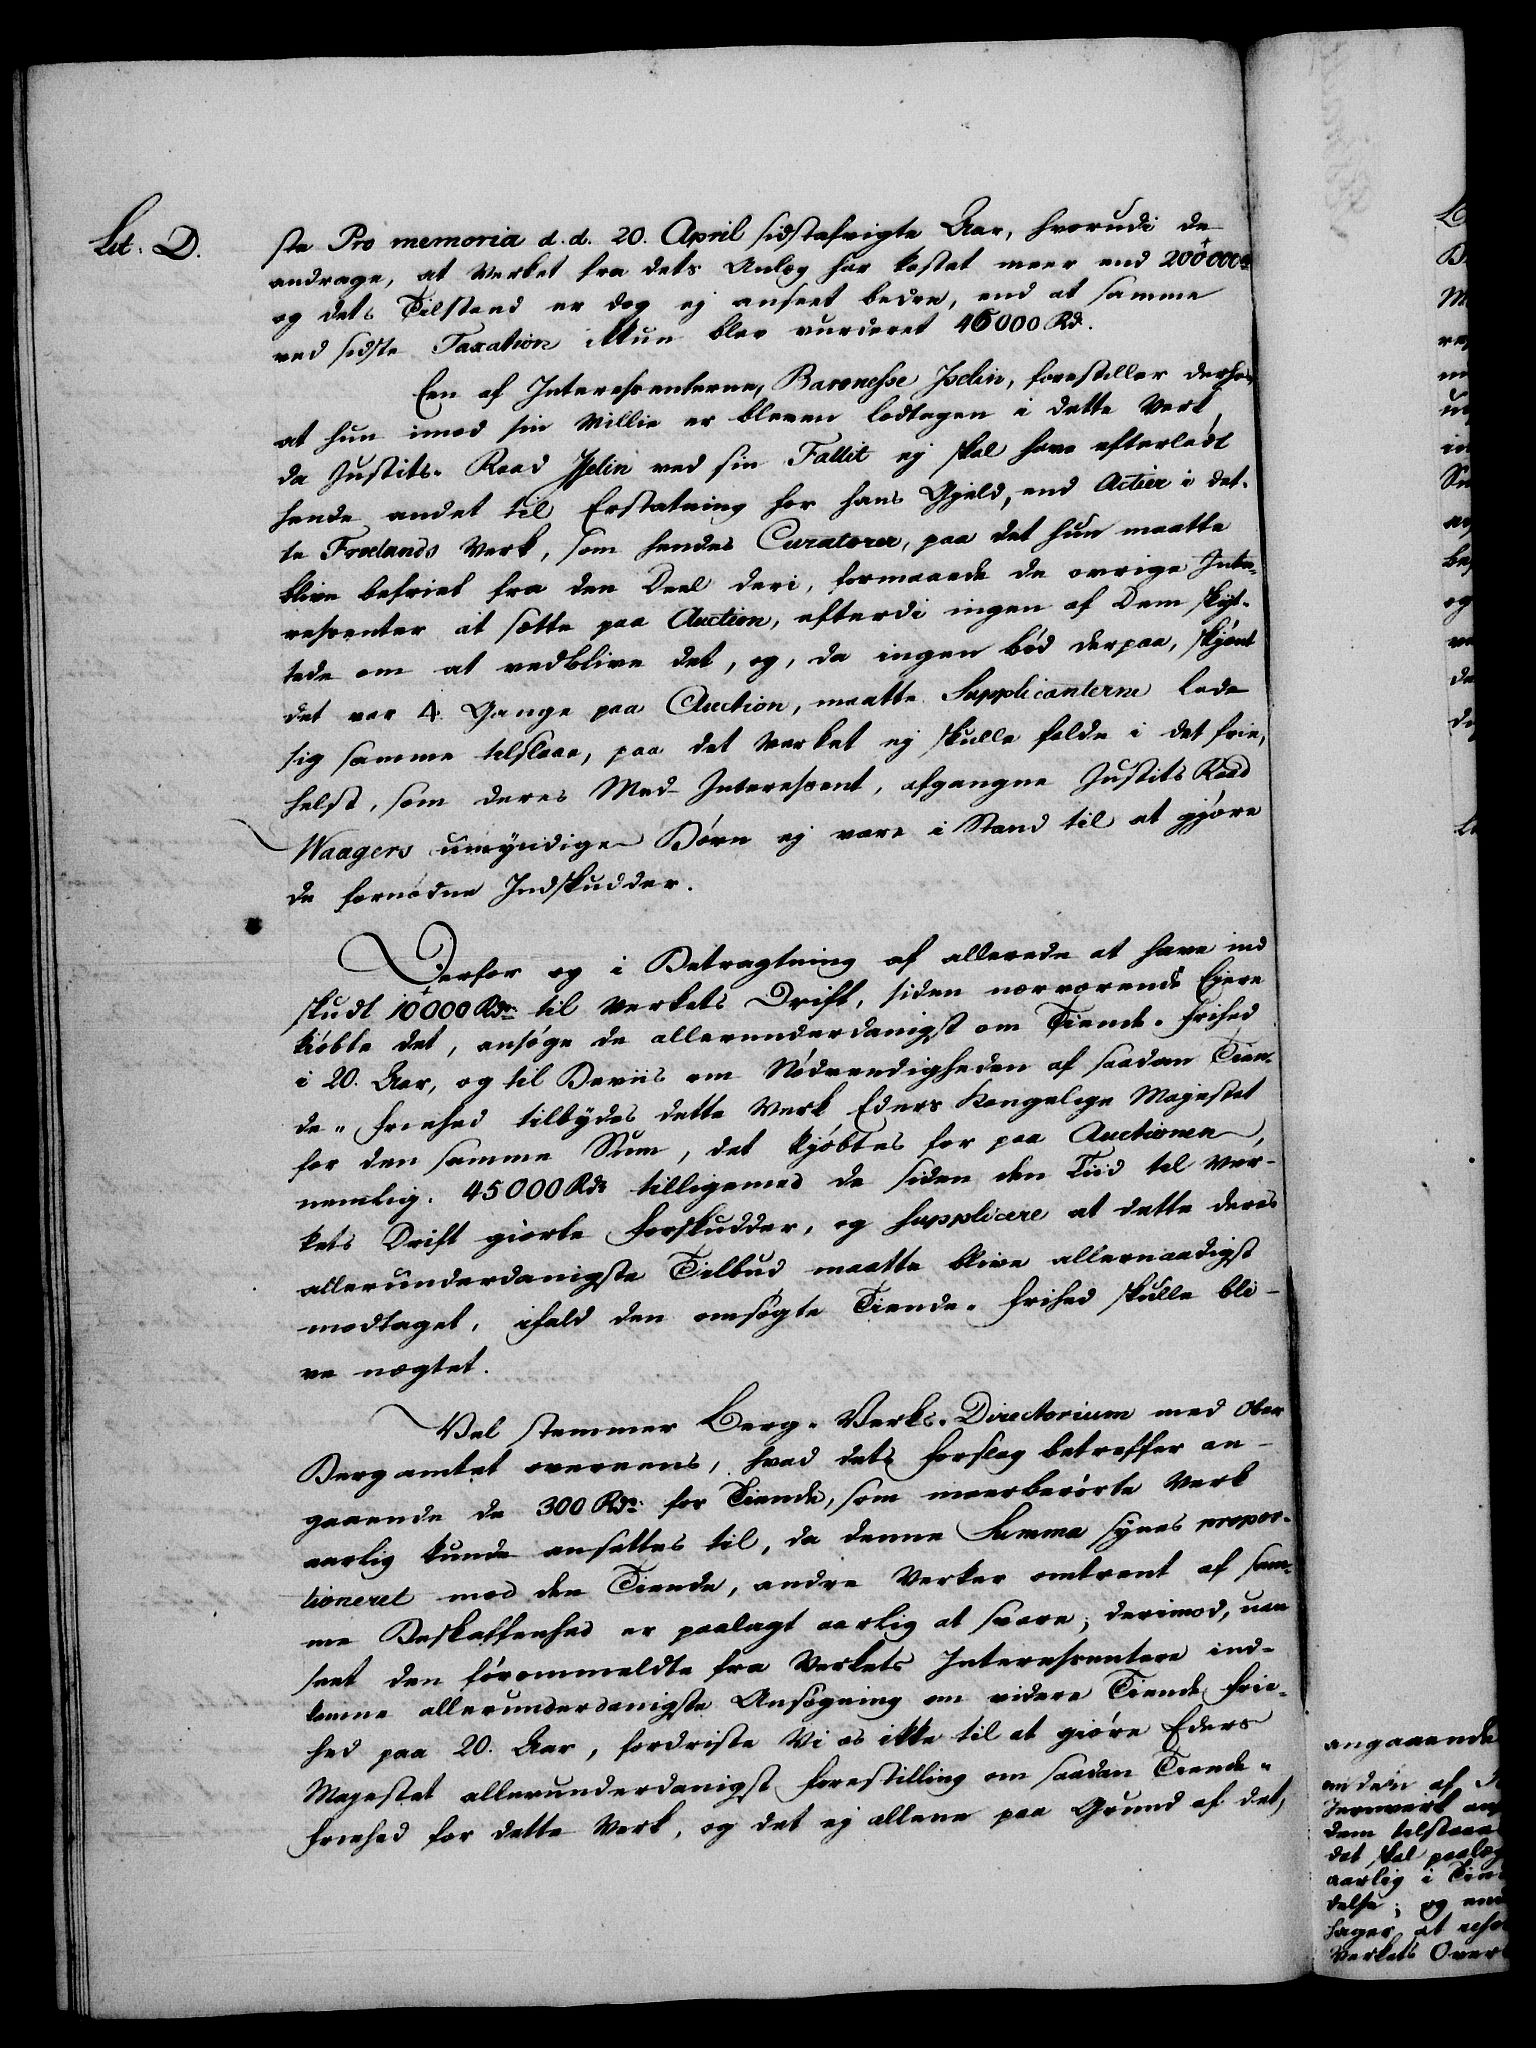 Lit: D.
ste Pro memoria d. d. 20. April sidstafvigte Aar, hvorudi de
andrage, at Verket fra dets Anlæg har kostet meer end 200000
og dets Tilstand er dog ej anseet bedre, end at samme
ved sidste Taxation ikkun blev vurderet 46000 Rd.
Een af Interessenterne, Baronesse Iselin, forestiller derhos,
at hun imod sin Villie er bleven lodtagen i dette Verk,
da Justits-Raad Iselin ved sin Fallit ej skal have efterladt
hende andet til Erstatning for hans Gjeld, end Actier i det-
te Froelands Verk, som hendes Curatorer, paa det hun maatte
blive befriet fra den Deel deri, formaaede de øvrige Inte-
ressenter at sætte paa Auction, efterdi ingen af Dem skjøt-
tede om at vedblive det, og, da ingen bød derpaa, skjønt
det var 4 Gange paa Auction, maatte Supplicanterne lade
sig samme tilslaae, paa det Verket ej skulle falde i det frie,
helst, som deres Med-Interessent, afgangne Justits Raad
Waagers umyndige Børn ej vare i Stand til at gjøre
de fornødne Indskudder.
Derfor og i Betragtning af allerede at have ind
skudt 10000 Rdr til Verkets Drift, siden nærværende Ejere
kiøbte det, ansøge de allerunderdanigst om Tiende-Frihed
i 20. Aar, og til Beviis om Nødvendigheden af saadan Tien-
de-Friehed tilbydes dette Verk Eders Kongelige Majestet
for den samme Sum, det kjøbtes for paa Auctionen,
nemlig: 45000 Rdr tilligemed de siden den Tiid til Ver-
kets Drift giorte Forskudder, og supplicere at dette deres
allerunderdanigste Tilbud maatte blive allernaadigst
modtaget, ifald den ansøgte Tiende-Frihed skulle bli-
ve nægtet.
Vel stemmer Berg-Verks-Directorium med Ober
Bergamtet overeens, hvad dets Forslag betreffer an-
gaaende de 300 Rdr for Tiende, som meerberørte Verk
aarlig kunde ansættes til, da denne Summa synes propor-
tioneret mod den Tiende, andre Verker omtrent af sam-
me Beskaffenhed er paalagt aarlig at svare; derimod, uan
seet den førommeldte fra Verkets Interessentere ind-
komne allerunderdanigste Ansøgning om videre Tiende Frie-
hed paa 20. Aar, fordriste Vi os ikke til at giøre Eders
Majestet allerunderdanigst Forestilling om saadan Tiende-
Friehed for dette Verk, og det ej allene paa Grund af det,
angaaende
anden af
Jernverk
dem tilstaae
det skal paalæg
aarlig i Tien
delse; og
Verkets Over